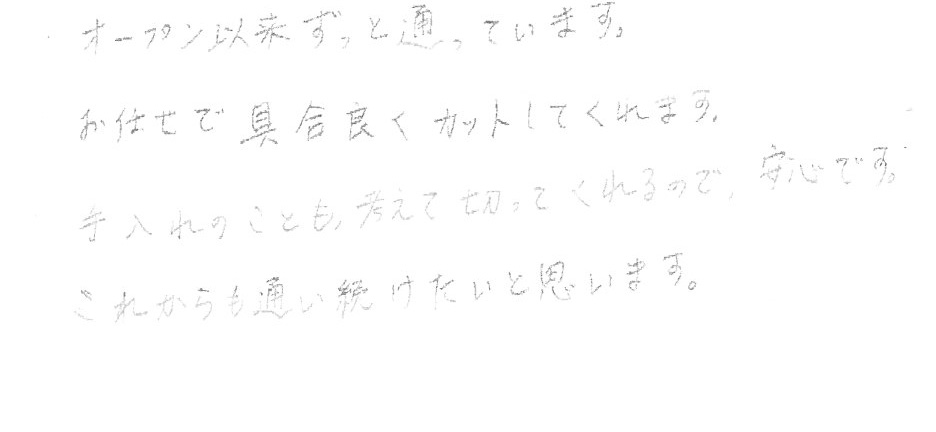 オープン以来ずっと通っています。
お任せで具合良くカットしてくれます。
手入れのことも、考えて切ってくれるので、安心です。
これからも通い続けたいと思います。